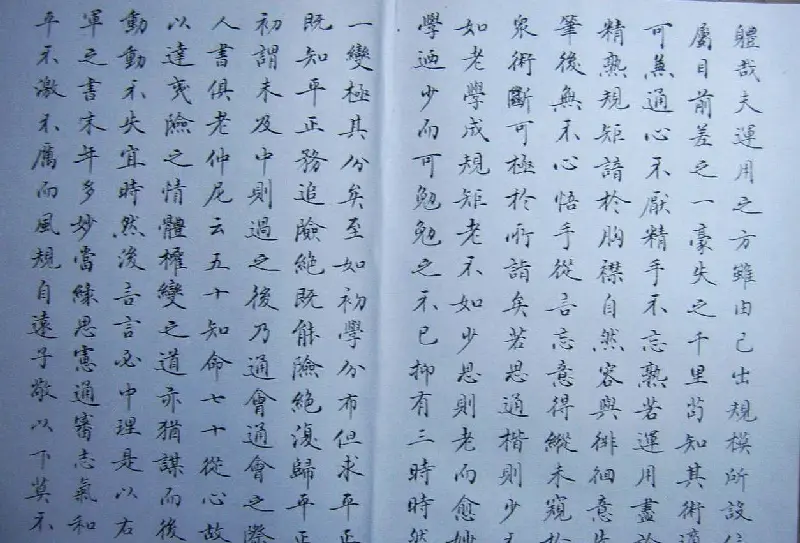 體哉夫運用之方雖由己出規模所設信
屬目前差之一豪失之千里苟知其術適
可兼通心不厭精手不忘熟若運用盡於
精熟規矩諳於胸襟自然容與徘徊意先
筆後無不心悟手從言忘意得縱未窺於
眾術斷可極於所詣矣若思通楷則少不
如老學成規矩老不如少思則老而愈妙
學迺少而可勉勉之不已抑有三時時然
一變極其分矣至如初學分布但求平正
既知平正務追險絕既能險絕復歸平正
初謂未及中則過之後乃通會通會之際
人書俱老仲尼云五十知命七十從心故
以達夷險之情體權變之道亦猶謀而後
動動不失宜時然後言言必中理是以右
軍之書末年多妙當緣思慮通審志氣和
平不激不厲而風規自遠子敬以下莫不